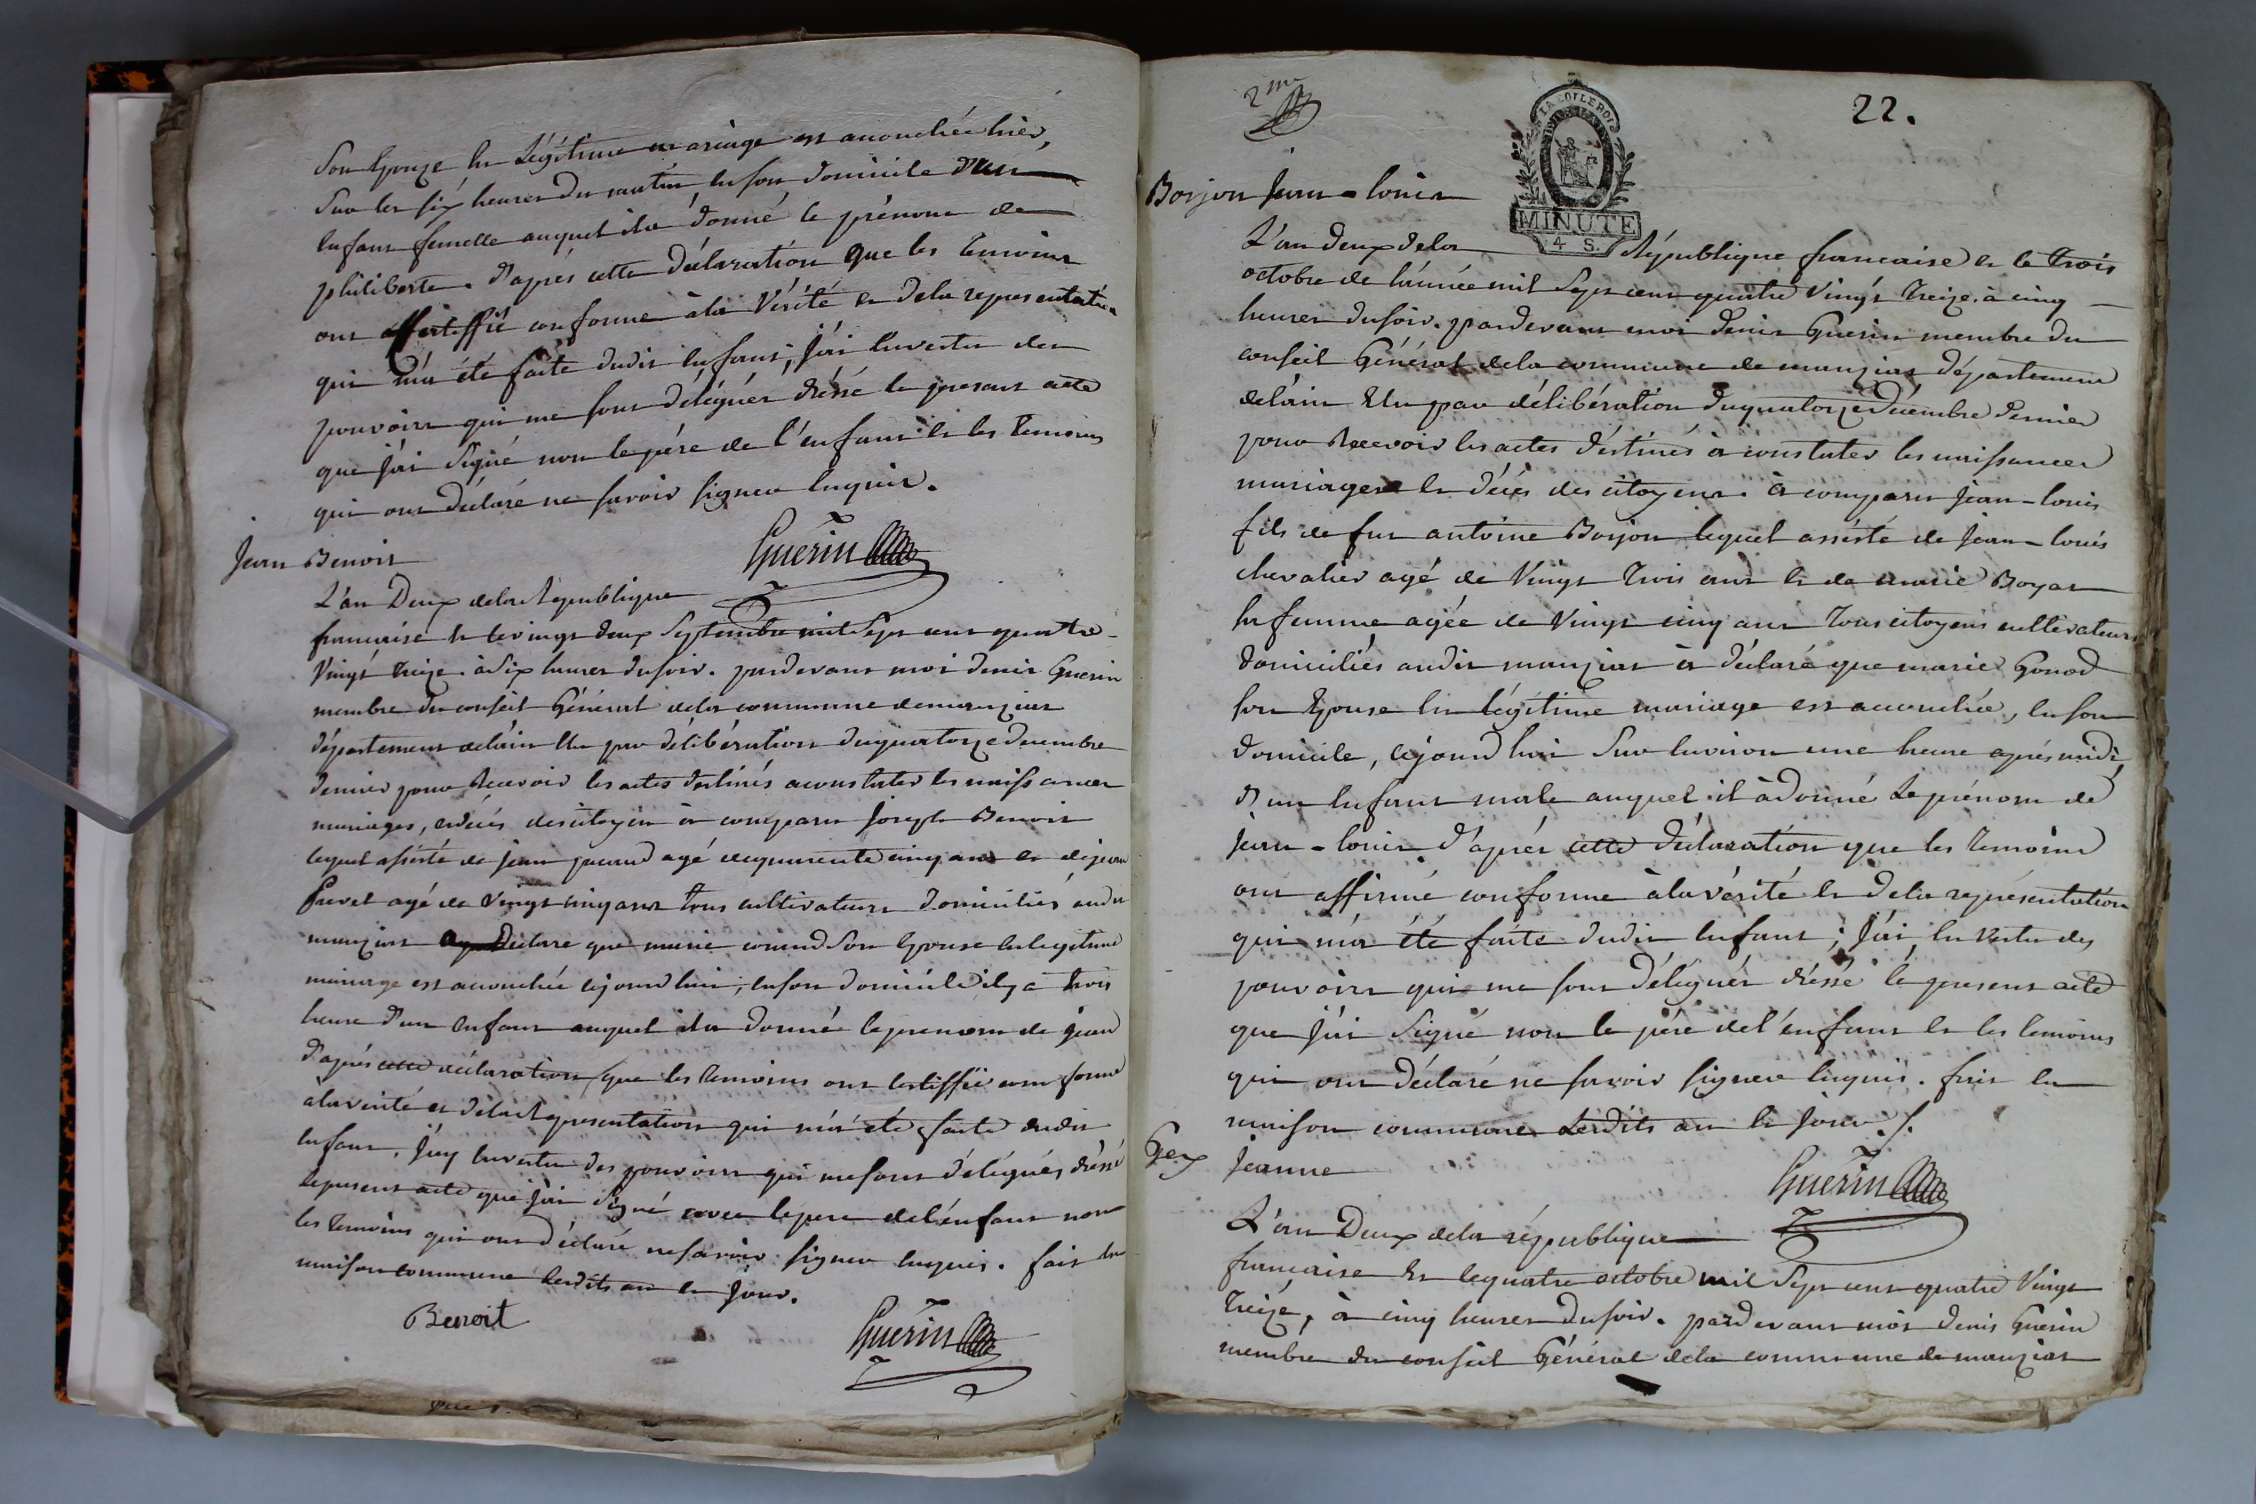 Son Epouze En Légitime mariage est accouchée hier,
Sur les six heures du matin En son domicile d'un
Enfant femelle auquel il a donné le prénom de
philiberte. d'aprés cette déclaration que les temoins
ont certiffié conforme à la Vérité et de la representation
qui m'a été faite dudit Enfant, j'ai En vertu des
pouvoirs qui me sont délégués dréssé le présent acte
que j'ai Signé non le pére de l'enfant et les temoins
qui ont déclaré ne savoir signer Enquis.
Guerin
Jean Benoit
L'an Deux de la Republique
francaise et le vingt deux Septembre mil Sept cent quatre
Vingt treize. à six heures du soir. pardevant moi denis Guerin
membre du conseil Général de la commune de manziat
département de l'ain Elu par délibération du quatorze decembre
dernier pour Recevoir les actes destinés a constater les naissances
mariages, et décés des citoyens à comparu Joseph Benoit
lequel assisté de jean agé de quarente cinq ans et de jean
agé de Vingt cinq ans tous cultivateurs domiciliés audit
manziat Declare que marie son Epouse En legitime
mariage est accouchée cejourd'hui, En son domicile il y a trois
heure d'un Enfant auquel il a donné le prenom de jean
d'aprés cette déclaration que les temoins ont certiffié conforme
à la verité et de la Representation qui m'a été faite dudit
Enfant, j'ay En vertu des pouvoirs qui me sont délégués dréssé
le present acte que j'ai Signé avec le pere de l'enfant non
les temoins qui ont déclaré ne savoir signer Enquis. fait En
maison commune Lesdits an et jour.
Benoit
Guerin
2me
22.
LA LOI LE ROI
MINUTE
4 S.
Borjon Jean-louis
L'an deux de la République francaise et le trois
octobre de l'année mil Sept cent quatre vingt treize. à cinq
heures du soir. pardevant moi denis Guerin membre du
conseil Général de la commune de manziat département
de l'ain Elu par délibération du quatorze Décembre dernier
pour Recevoir les actes déstinés à constater les naissances
mariages et décés des citoyens. à comparu Jean-louis
fils de feu antoine Borjon lequel assisté de Jean-louis
chevalier agé de Vingt trois ans et de marie Boyat
sa femme agée de Vingt cinq ans tous citoyens cultivateurs
domiciliés audit manziat à déclaré que marie Gonod
son Epouse En légitime mariage est accouchée, En son
domicile, cejourd'hui Sur Environ une heure aprés midi,
d'un Enfant male auquel il à donné Le prénom de
jean-louis. d'aprés cette déclaration que les temoins
ont affirmé conforme à la vérité et de la représentation
qui m'a été faite dudit Enfant; j'ai, En vertu des
pouvoirs qui me sont délégués dréssé le present acte
que j'ai Signé non le pére de l'enfant et les temoins
qui ont déclaré ne savoir signer Enquis. fait En
maison commune Lesdits an et jour./.
Guerin
Gex Jeanne
L'an Deux de la république
francaise et le quatre octobre mil Sept cent quatre Vingt
treize, à cinq heures du soir. pardevant moi denis Guerin
membre du conseil Général de la commune de manziat